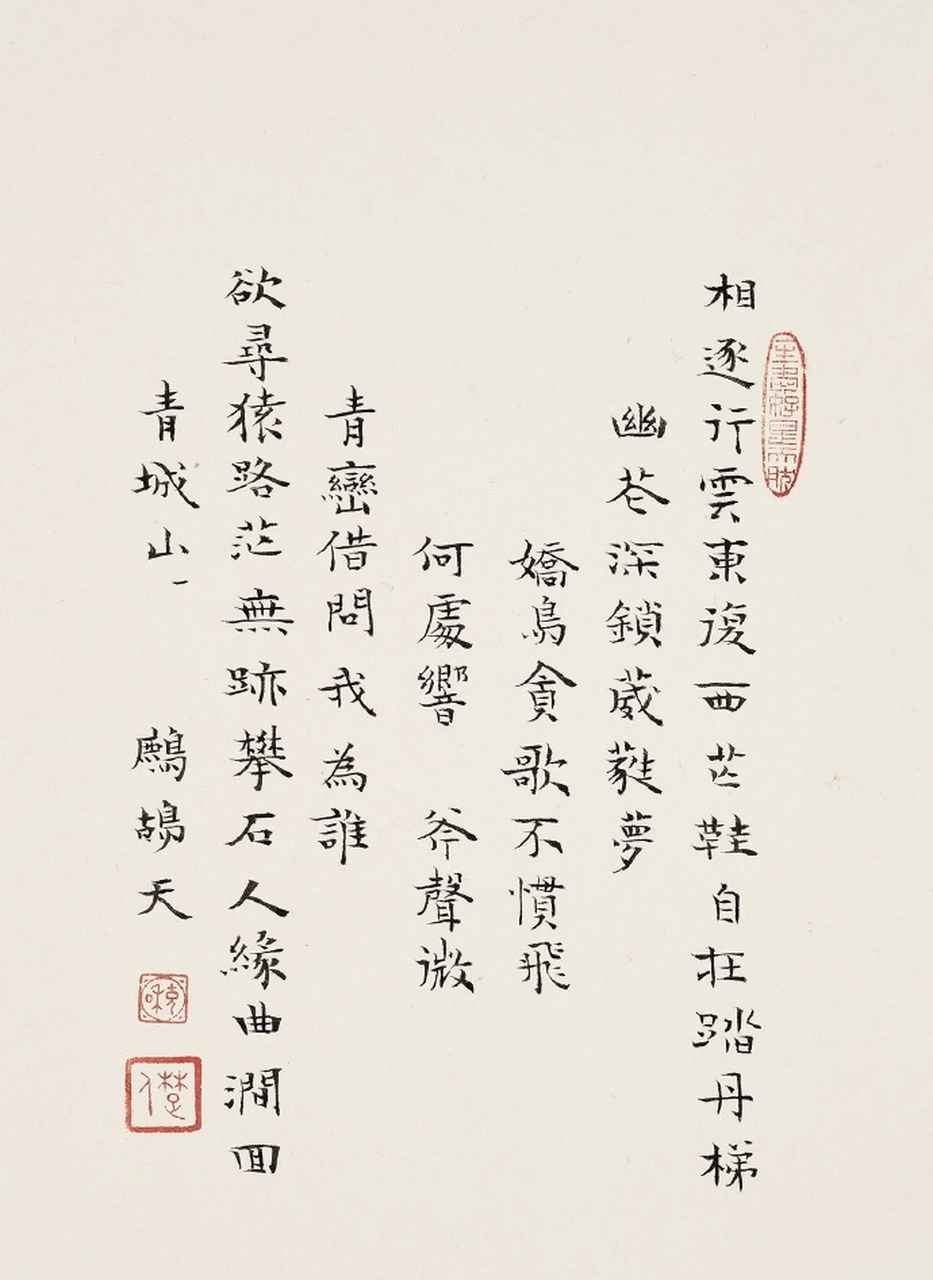 相逐行雲東復西芒鞋自在踏丹梯
幽苍深鎖葳蕤夢
嬌鳥貪歌不慣飛
何處響 斧聲微
青巒借問我為誰
欲尋猿路茫無跡攀石人緣曲澗回
青城山一 鷓鴣天